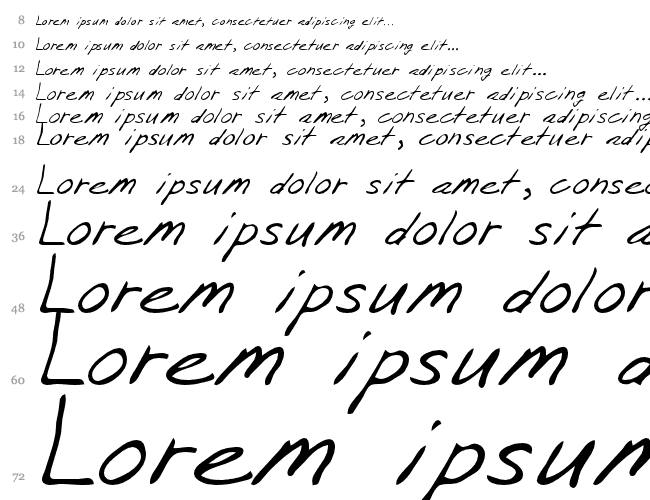 8 Lorem ipsum dolor sit amet, consectetuer adipiscing elit...
10 Lorem ipsum dolor sit amet, consectetuer adipiscing elit...
12 Lorem ipsum dolor sit amet, consectetuer adipiscing elit...
14 Lorem ipsum dolor sit amet, consectetuer adipiscing elit...
16 Lorem ipsum dolor sit amet, consectetuer adipiscing
18 Lorem ipsum dolor sit amet, consectetuer adip
24 Lorem ipsum dolor sit amet, consec
36 Lorem ipsum dolor sit a
48 Lorem ipsum dolor
60 Lorem ipsum d
72 Lorem ipsum